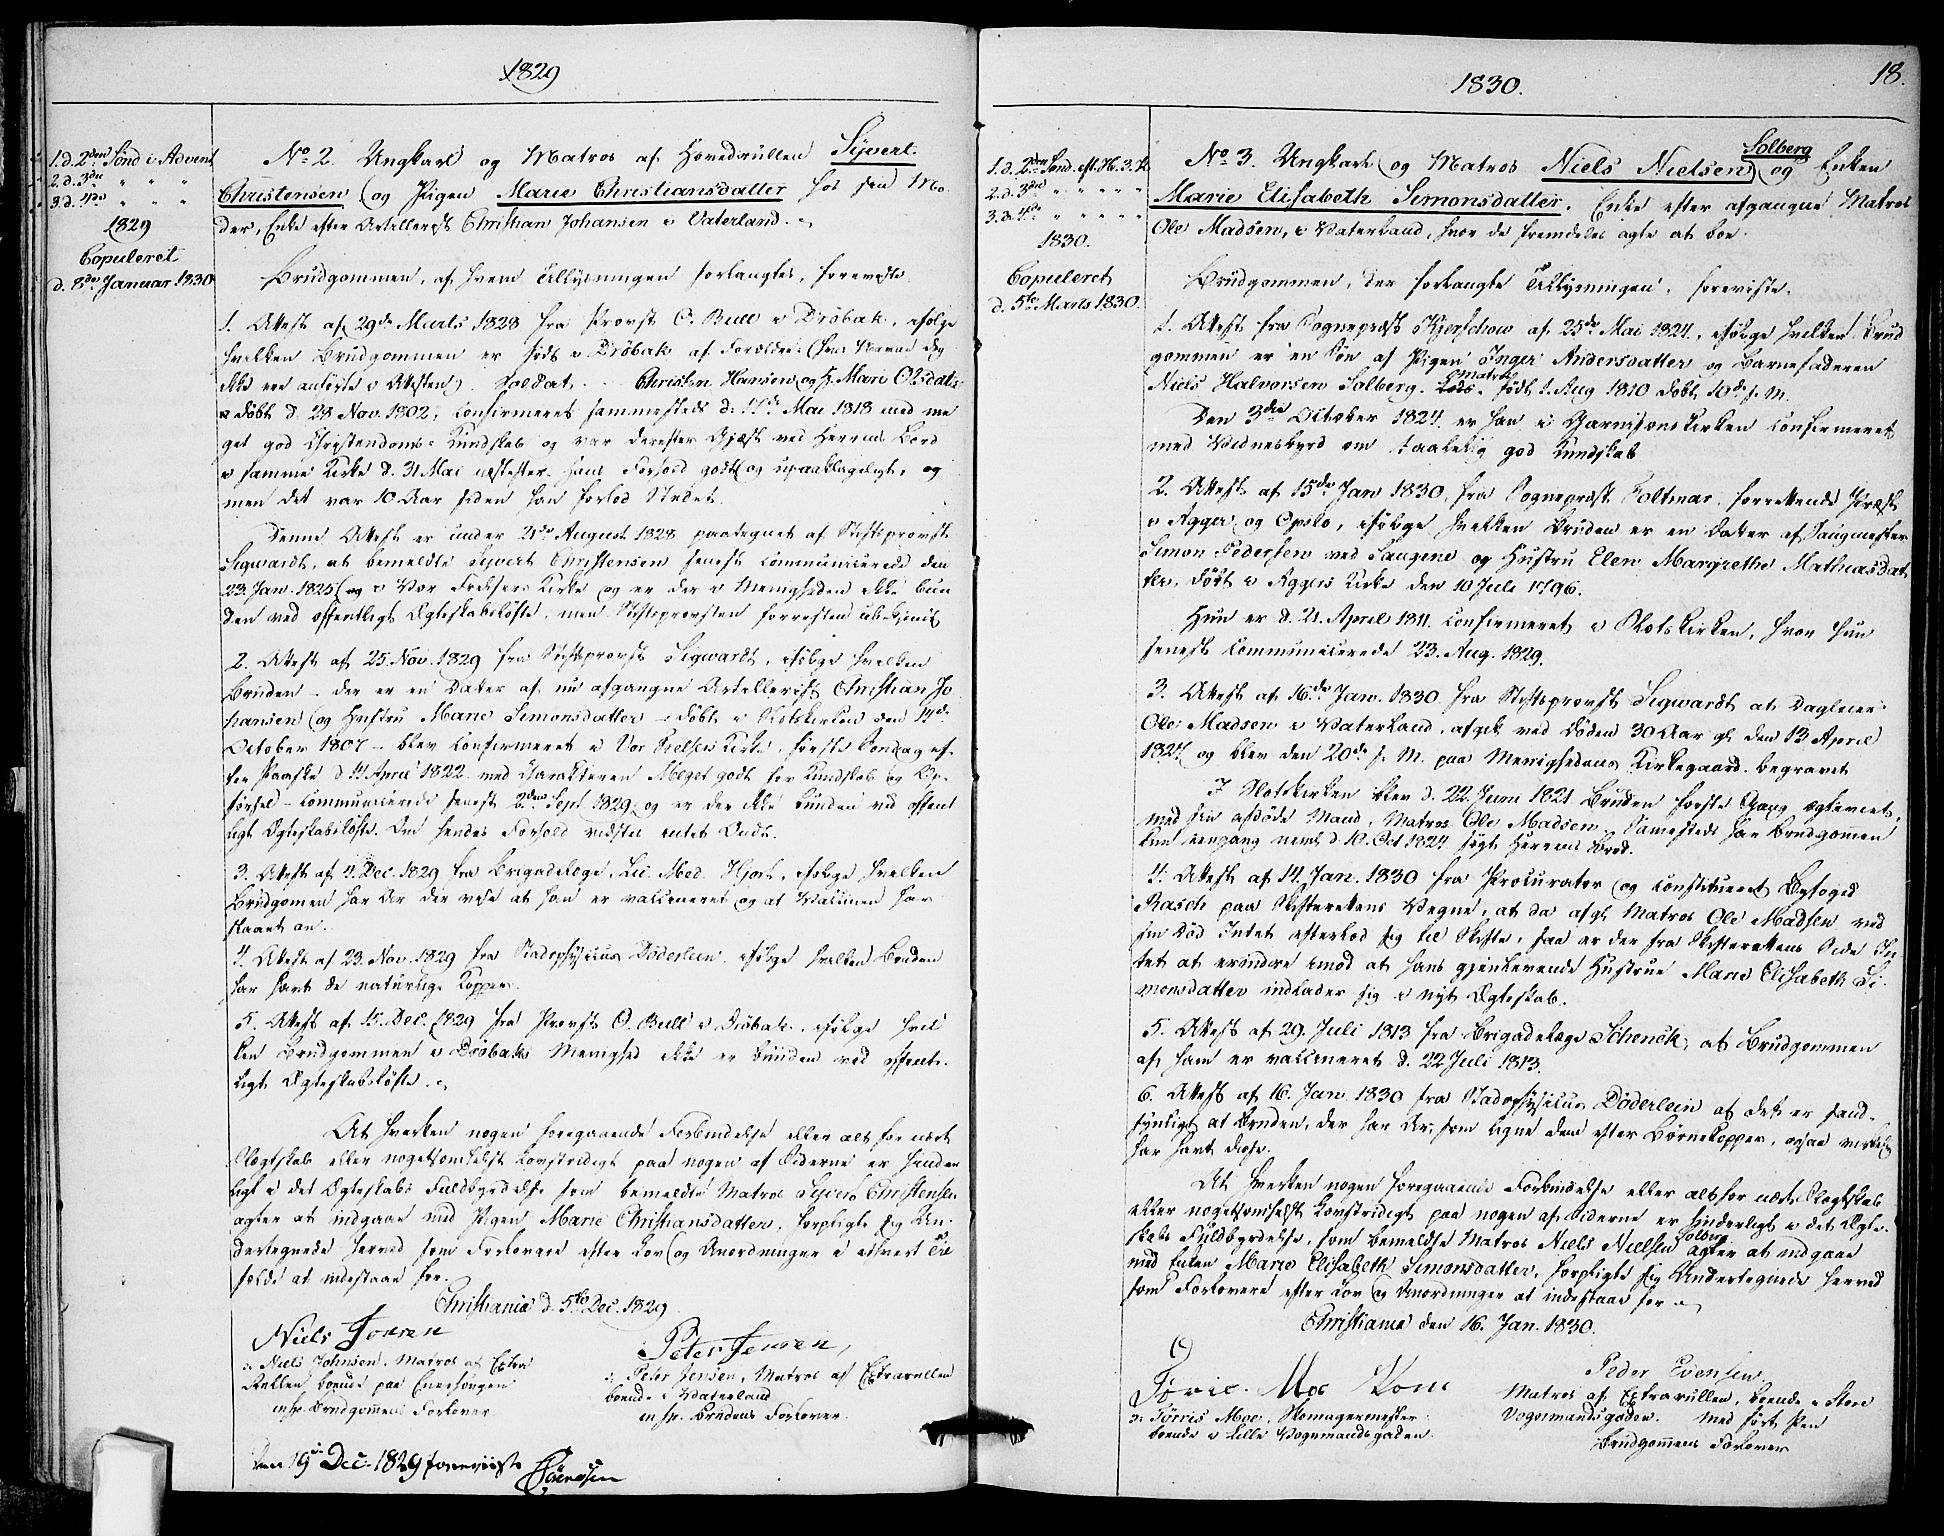 1829
1.d. 2den Sønd i Advent
2.d. 3die " " "
3.d. 4de " " "
1829
Copuleret
d. 8de Januar 1830
No 2. Ungkarl og Matros af Hovedrullen Syvert
Christensen og Pigen Marie Christiansdatter hos sin Mo-
der, Enke efter Artellerist Christian Johansen i Vaterland.
Brudgommen, af hvem Tillysningen forlangtes, foreviste
1. Attest af 29de Marts 1828 fra Provst O. Bull i Drøbak, ifølge
hvilken Brudgommen er født i Drøbak af Forældre: (hvis Navne dog
ikke ere anførte i Attesten) Soldat Christen Hansen og H. Marie Olsdatr
døbt d. 28 Nov. 1802, confirmeret sammesteds d. 17de Mai 1818 med me
get god Christendoms-Kundskab og var derefter Gjæst ved Herrens Bord
i samme Kirke d. 31 Mai næstefter. Hans Forhold godt og upaaklageligt, og
men det var 10 Aar siden han forlod Stedet.
Denne Attest er under 21de August 1828 paategnet af Stiftsprovst
Sigwardt, at bemeldte Syvert Christensen senest communicerede den
23. Jan. 1825 og i Vor Frelsers Kirke og er der i Menigheden ikke bun
den ved offentligt Ægteskabsløfte, men Stiftsprovsten forresten ubekjendt
2. Attest af 25. Nov. 1829 fra Stiftsprovst Sigwardt, ifølge hvilken
Bruden - der er en Datter af nu afgangne Artellerist Christian Jo
hansen og Hustru Marie Simonsdatter - døbt i Slotskirken den
October 1807 - blev confirmeret i Vor Frelsers Kirke, første Søndag ef-
ter Paaske d 14 April 1822 med Charakteren Meget godt for Kundskab og Op-
førsel - communicerede senest 2den Sept 1829, og er der ikke bunden ved offent
ligt Ægteskabsløfte. Om hendes Forhold vidstes intet Ondt.
3. Attest af 4. Dec. 1829 fra Brigadelæge, Lic. Med. Hjort, ifølge hvilken
Brudgomen har Ar der vise at han er vaccineret og at Vaccinen har
slaaet an.
4. Attest af 23. Nov. 1829 fra Stadsphysicus Döderlein ifølge hvilken Bruden
har havt de naturlige Kopper.
5. Attest af 15. Dec. 1829 fra Provst O. Bull i Drøbak, ifølge hvil
ken Brudgommen i Drøbaks Menighed ikke er bunden ved offent-
ligt Ægteskabsløfte.
At hverken nogen foregaaende Forbindelse eller alt for nært
Slægtskab eller nogetsomhelst Lovstridigt paa nogen af Siderne er hinder
ligt i det Ægteskabs Fuldbyrdelse som bemeldte Matros Syvert Christensen
agter at indgaae med Pigen Marie Christiansdatter, forpligte sig Un-
dertegnede herved som Forlovere efter Lov og Anordninger i ethvert Til
fælde at indestaae for.
Christiania d. 5te Dec. 1829
Niels Jonsen
Niels Johnsen, Matros af Extra
Rullen boende paa Enerhougen
Brudgommens Forlover
Peter Jensen,
Peter Jensen, Matros af Extrarullen
boende i Vaterland
Brudens Forlover.
Den 19de Dec: 1829 foreviist Sørensen
1830.
18.
1.d. 2den Sønd. e. H. 3. K.
2.d. 3die " " " "
3.d. 4de " " " "
1830.
Copuleret
d. 5te Marts 1830.
No 3. Ungkarl og Matros Niels Nielsen Solberg og Enken
Marie Elisabeth Simonsdatter, Enke efter afgangne Matros
Ole Madsen, i Vaterland, hvor de fremdeles agte at boe.
Brudgommen, der forlangte Tillysningen, foreviste.
1. Attest fra Sognepræst Kjerschow af 25de Mai 1824, ifølge hvilken Brud
gommen er en Søn af Pigen Inger Andersdatter og Barnefaderen
Niels Halvorsen Solberg, Matros født 1. Aug 1810 døbt 10de s. M.
Den 3die October 1824 er han i Garnisonskirken confirmeret
med Vidnesbyrd om taalelig god Kundskab
2. Attest af 15de Jan 1830, fra Sognepræst Coltmar, forrettende Præst
i Agger og Opslo, ifølge hvilken Bruden er en Datter af Saugmester
Simon Pedersen ved Saugene og Hustru Elen Margrethe Mathiasdat
ter, født i Aggers Kirke den 10 Juli 1796.
Hun er d. 21. April 1811. confirmeret i Slotskirken, hvor hun
senest communicerede 23. Aug. 1829.
3. Attest af 16de Jan. 1830 fra Stiftsprovst Sigwardt at Dagleier
Ole Madsen i Vaterland, afgik ved Døden 30 Aar gl. den 13 April
1827, og blev den 20de s. M. paa Menighedens Kirkegaard begravet
I Slotskirken blev d. 22 Juni 1821 Bruden første Gang ægteviet,
med sin afdøde Mand, Matros Ole Madsen. Samesteds har Brudgomen
kun eengang neml. d. 10. Oct 1824 søgt Herrens Bord.
4. Attest af 14. Jan. 1830 fra Procurator og constitueret Byfoged
Rasch paa Skifterettens Vegne, at da afg. Matros Ole Madsen ved
sin Død Intet efterlod sig til Skifte, saa er der fra Skifterettens Side In
tet at erindre imod at hans gjenlevende Hustrue Marie Elisabeth Si-
monsdatter indlader sig i nyt Ægteskab.
5. Attest af 29. Juli 1813 fra Brigadelæge Schenck, at Brudgommen
af ham er vaccineret d. 22 Juli 1813.
6. Attest af 16. Jan. 1830 fra Stadsphysicus Döderlein at det er sand-
synligt at Bruden, der har Ar, som ligne dem efter Børnekopper, ogsaa virkelig
har havt disse.
At hverken nogen foregaaende Forbindelse eller altfor nært Slægtskab
eller nogetsomhelst Lovstridigt paa nogen af Siderne er hinderligt i det Ægte-
skabs Fuldbyrdelse, som bemeldte Matros Niels Nielsen Solberg agter at indgaae
med Enken Marie Elisabeth Simonsdatter, forpligte sig Undertegnede herved
som Forlovere efter Lov og Anordninger at indestaae for
Christiania den 16. Jan. 1830.
Tøris Moe
Tørris Moe, Skomagermester
boende i Lille Vognmandsgaden.
Peder Evensen
Matros af Extrarullen, boende i Store
Vognmandsgaden. med ført Pen
Brudgommens Forlover